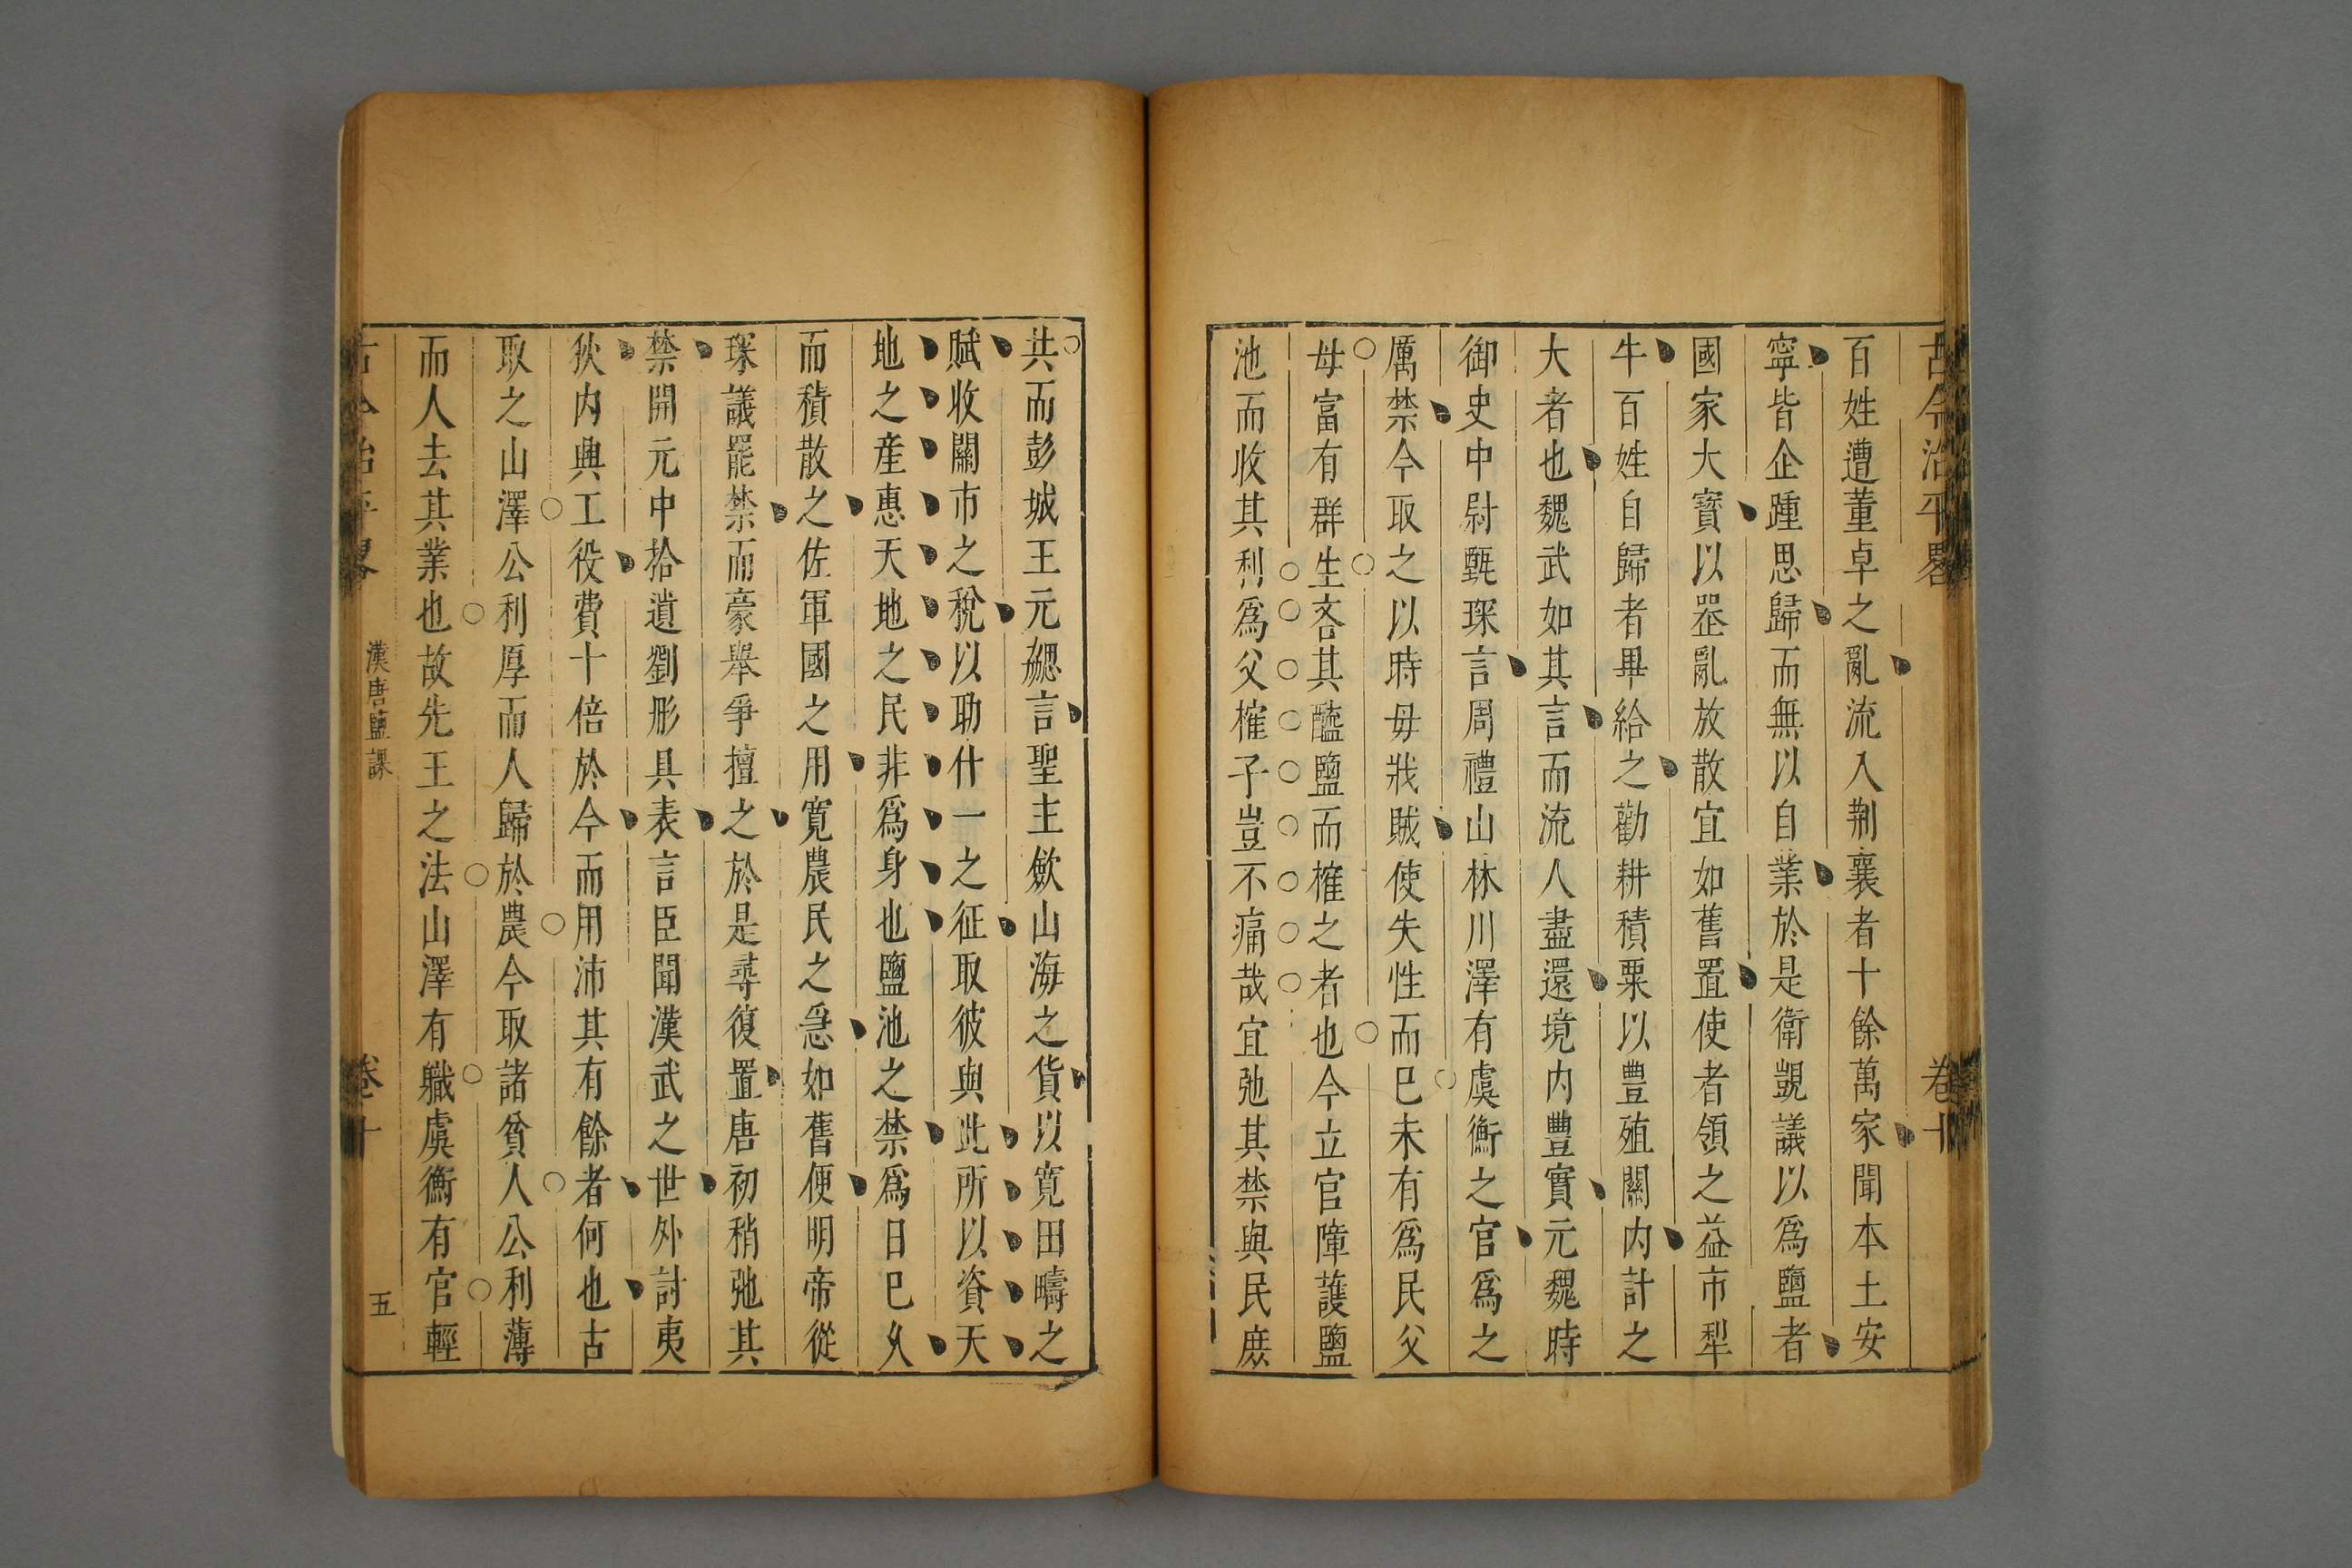 古今治平畧 卷十
百姓遭董卓之亂流入荆襄者十餘萬家聞本土安
寧皆企踵思歸而無以自業於是衛覬議以爲鹽者
國家大寳以罂亂放散宜如舊置使者領之益市犁
牛百姓自歸者畢給之勸耕積粟以豊殖關内計之
大者也魏武如其言而流人盡還境内豊實元魏時
御史中尉甄琛言周禮山林川澤有虞衡之官爲之
厲禁今取之以時毋戕賊使失性而已未有爲民父
母富有群生吝其醯鹽而榷之者也今立官障護鹽
池而收其利爲父榷子豈不痛哉宜弛其禁與民庶
共而彭城王元勰言聖主斂山海之貨以寛田疇之
賦收關市之稅以助什一之征取彼與此所以資天
地之産惠天地之民非爲身也鹽池之禁爲日已乆
而積散之佐軍國之用寛農民之急如舊便明帝從
琛議罷禁而豪舉爭擅之於是尋復置唐初稍弛其
禁開元中拾遺劉彤具表言臣聞漢武之世外討夷
狄内興工役費十倍於今而用沛其有餘者何也古
取之山澤公利厚而人歸於農今取諸貧人公利薄
而人去其業也故先王之法山澤有職虞衡有官輕
古今治平畧 漢唐鹽課 卷十 五